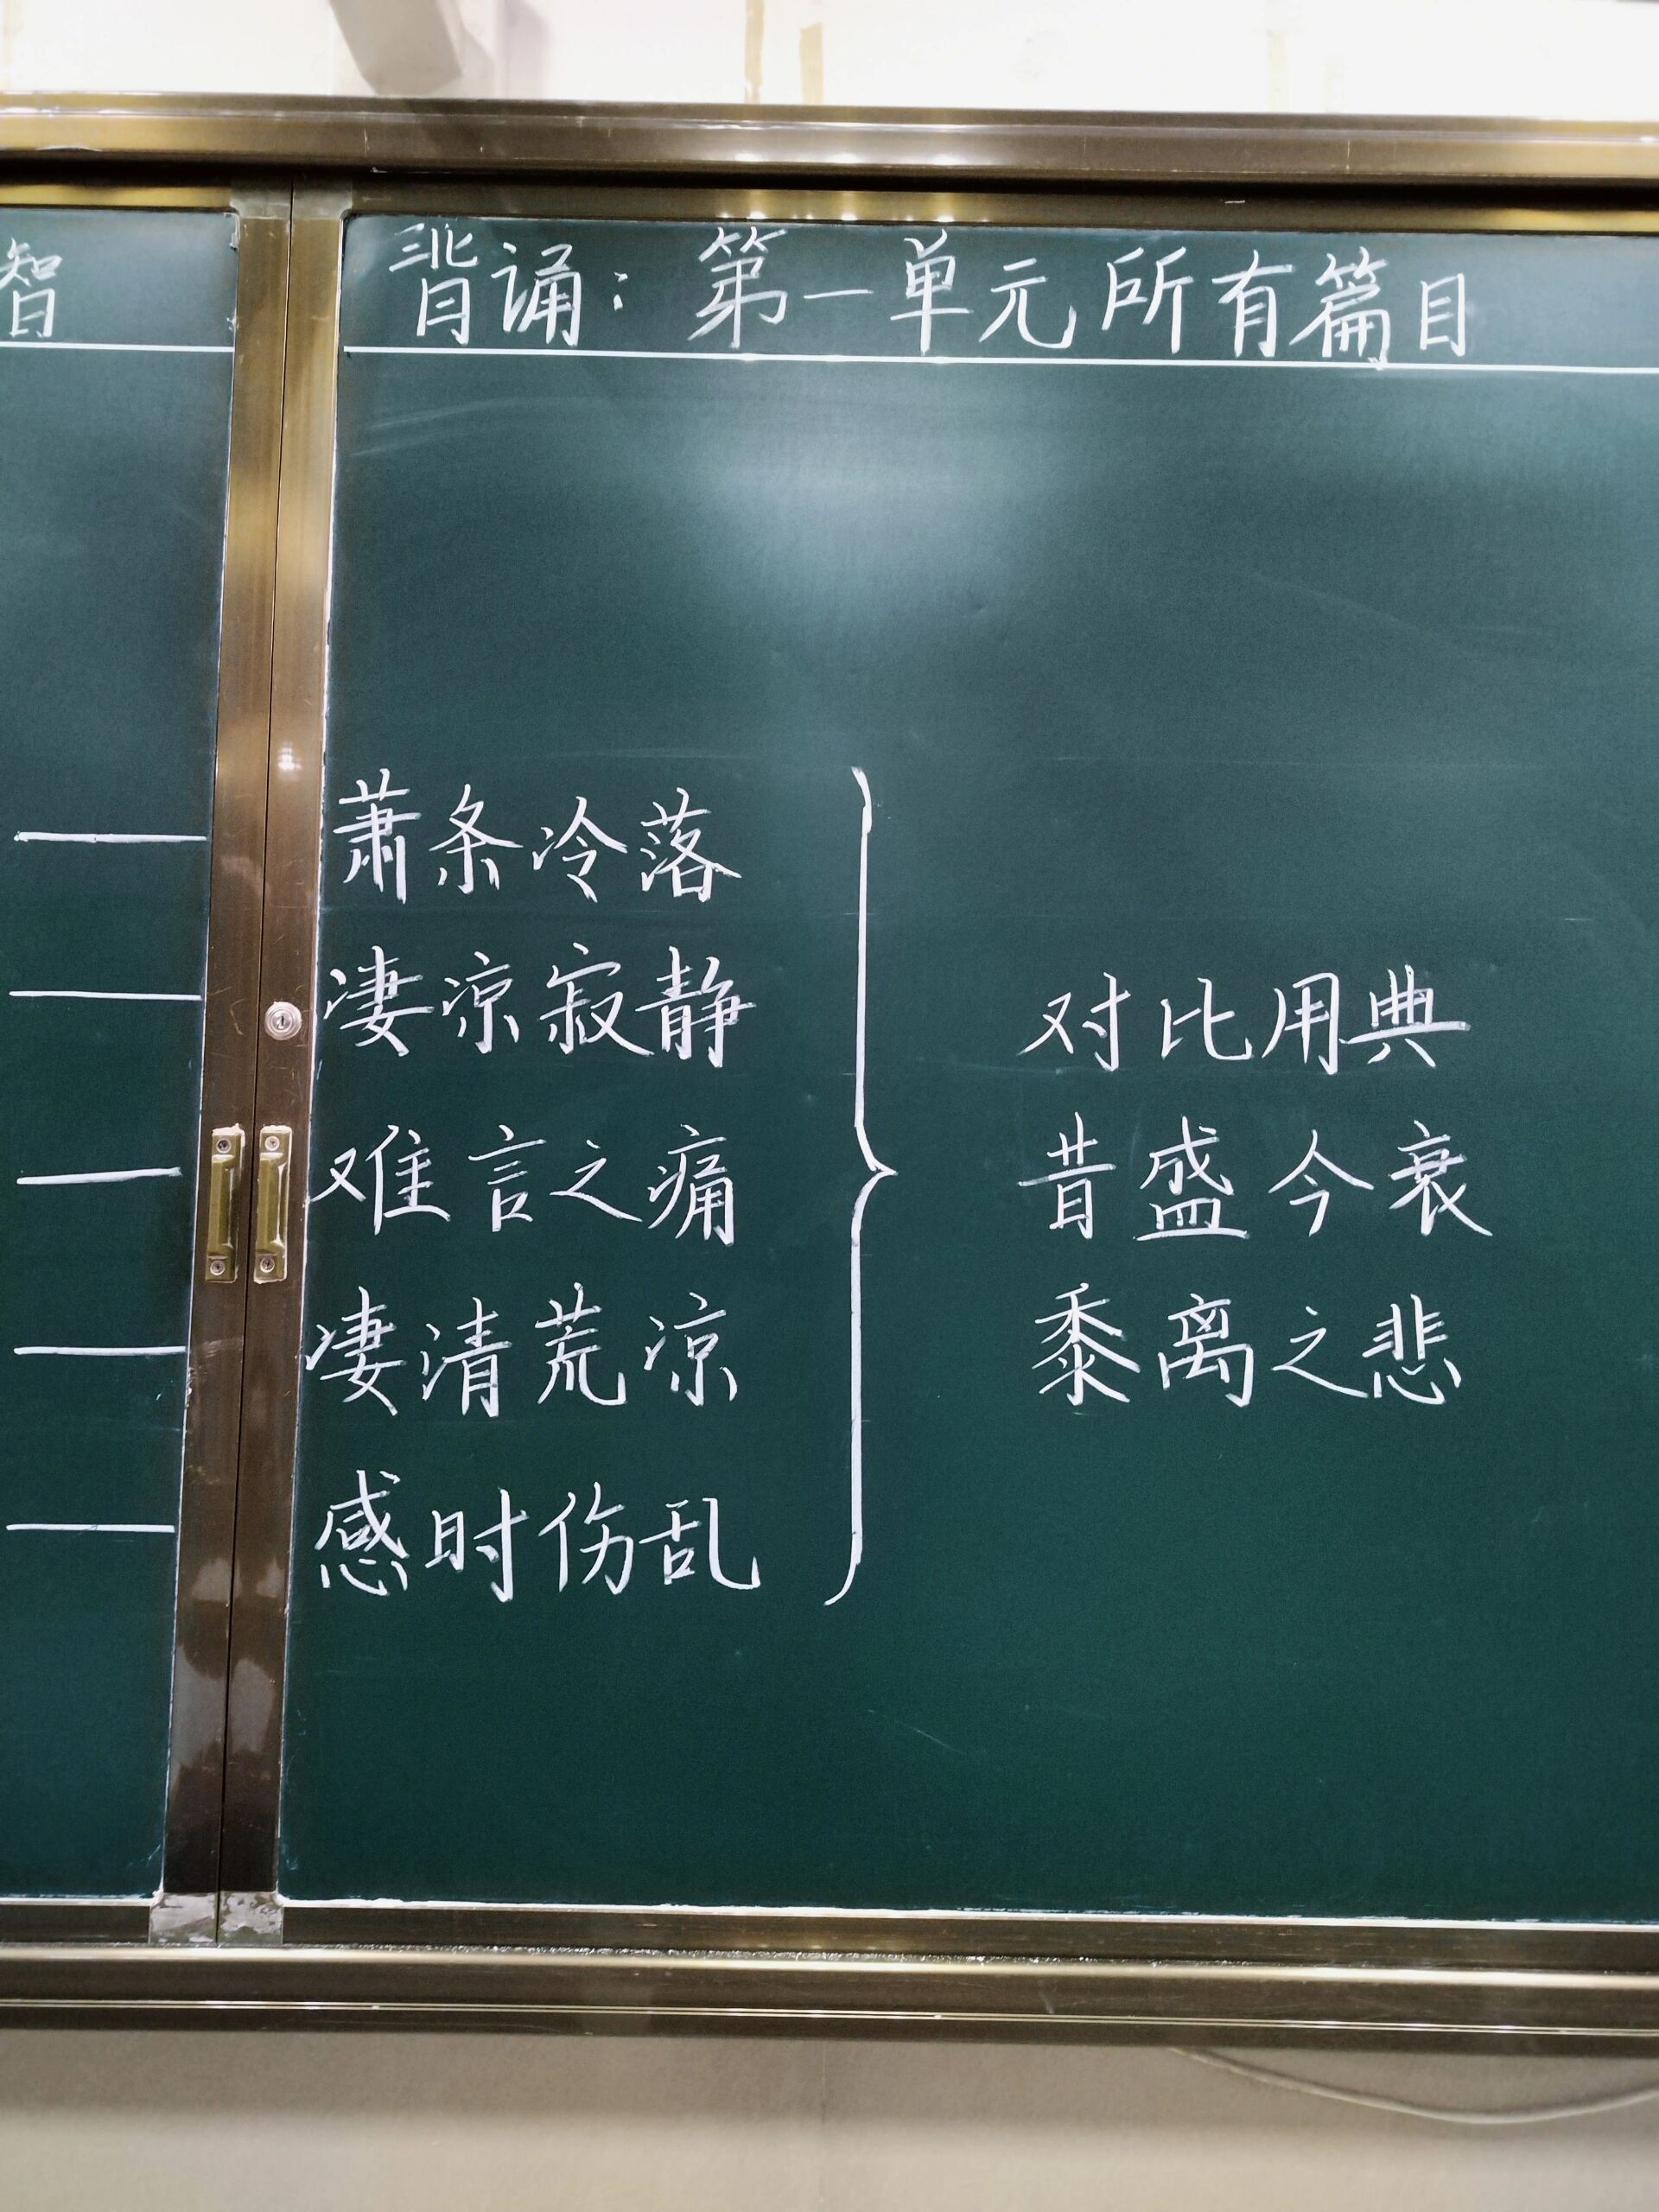 智
背诵：第一单元所有篇目
萧条冷落
凄凉寂静
难言之痛
凄清荒凉
感时伤乱
对比用典
昔盛今衰
黍离之悲